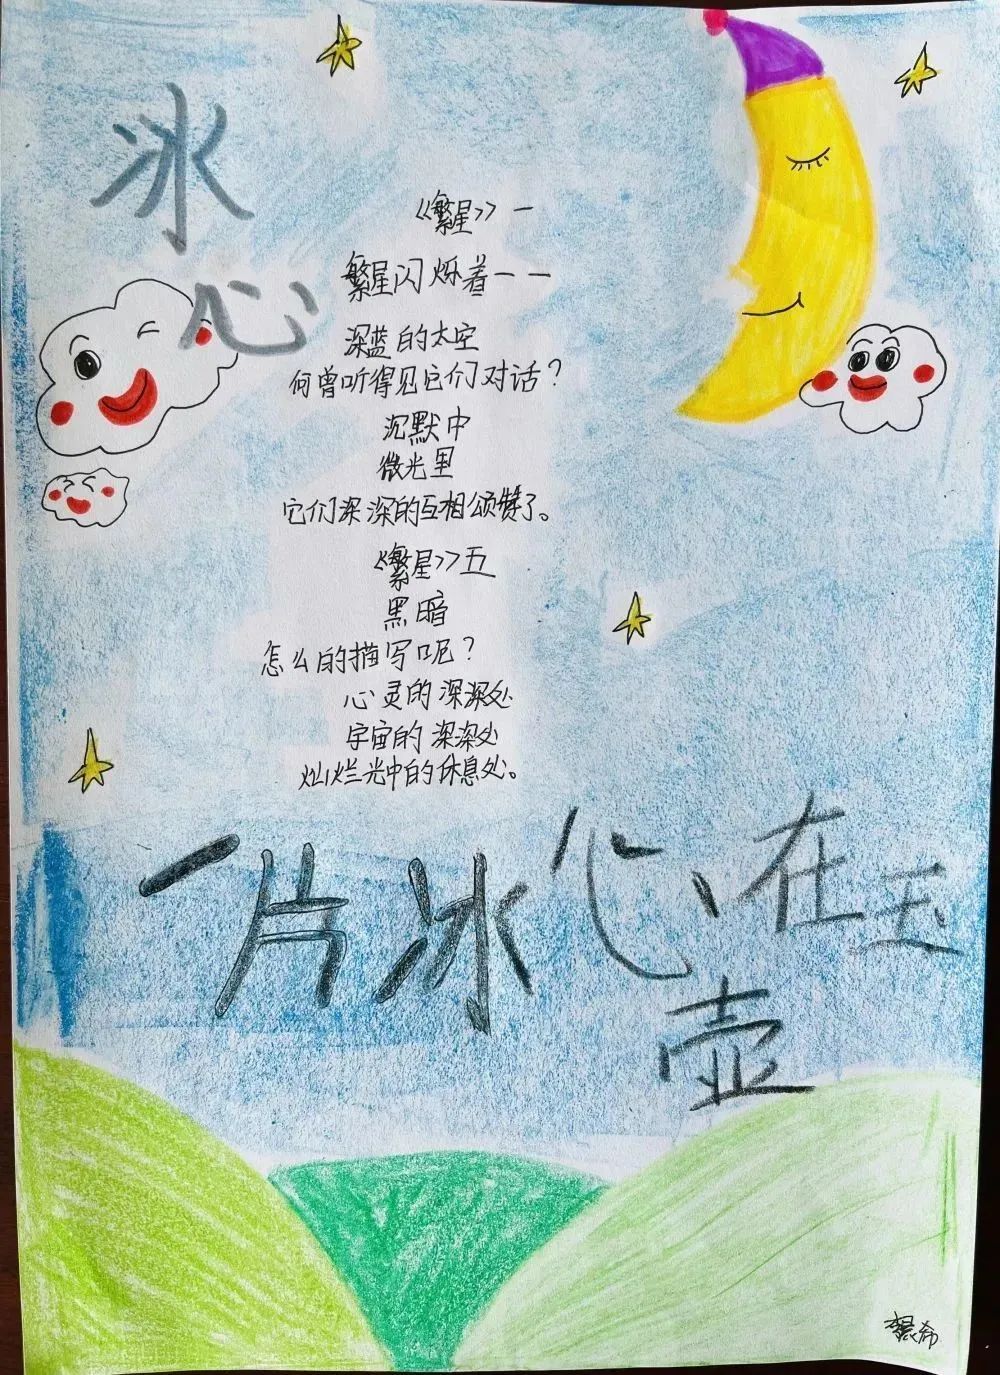 冰
心
《繁星》一
繁星闪烁着一一
深蓝的太空
何曾听得见它们对话？
沉默中
微光里
它们深深的互相颂赞了。
《繁星》五
黑暗
怎么的描写呢？
心灵的深深处
宇宙的深深处
灿烂光中的休息处。
一片冰心在玉
壶